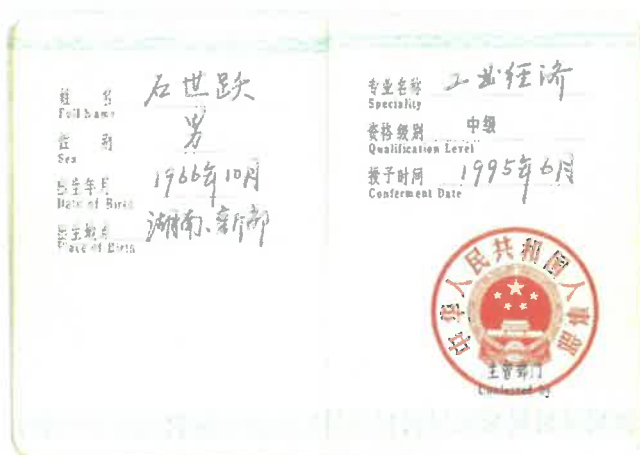 姓 名 石世跃
Full Name
性 别 男
Sex
出生年月 1966年10月
Date of Birth
出生地点 湖南、新邵
Place of Birth
专业名称 工业经济
Speciality
资格级别 中级
Qualification Level
授予时间 1995年6月
Conferment Date
中华人民共和国人事部
主管部门
Conferred By